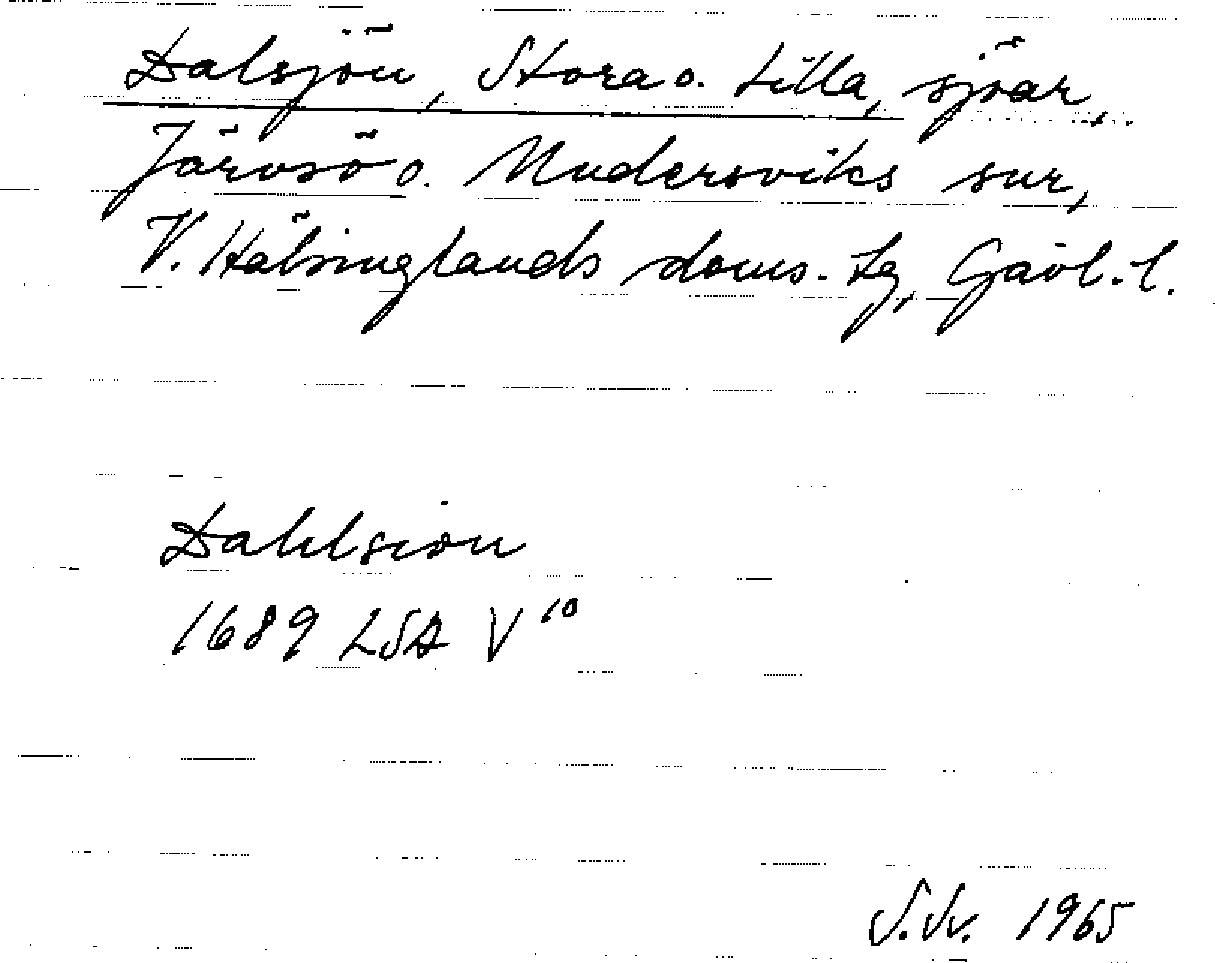 Dalsjön, Stora o. Lilla, sjöar,
Järvsö o. Undersviks snr,
V. Hälsinglands doms. tg, Gävl. l.
Dahlsiön
1689 LSA V 10
S.Sv. 1965